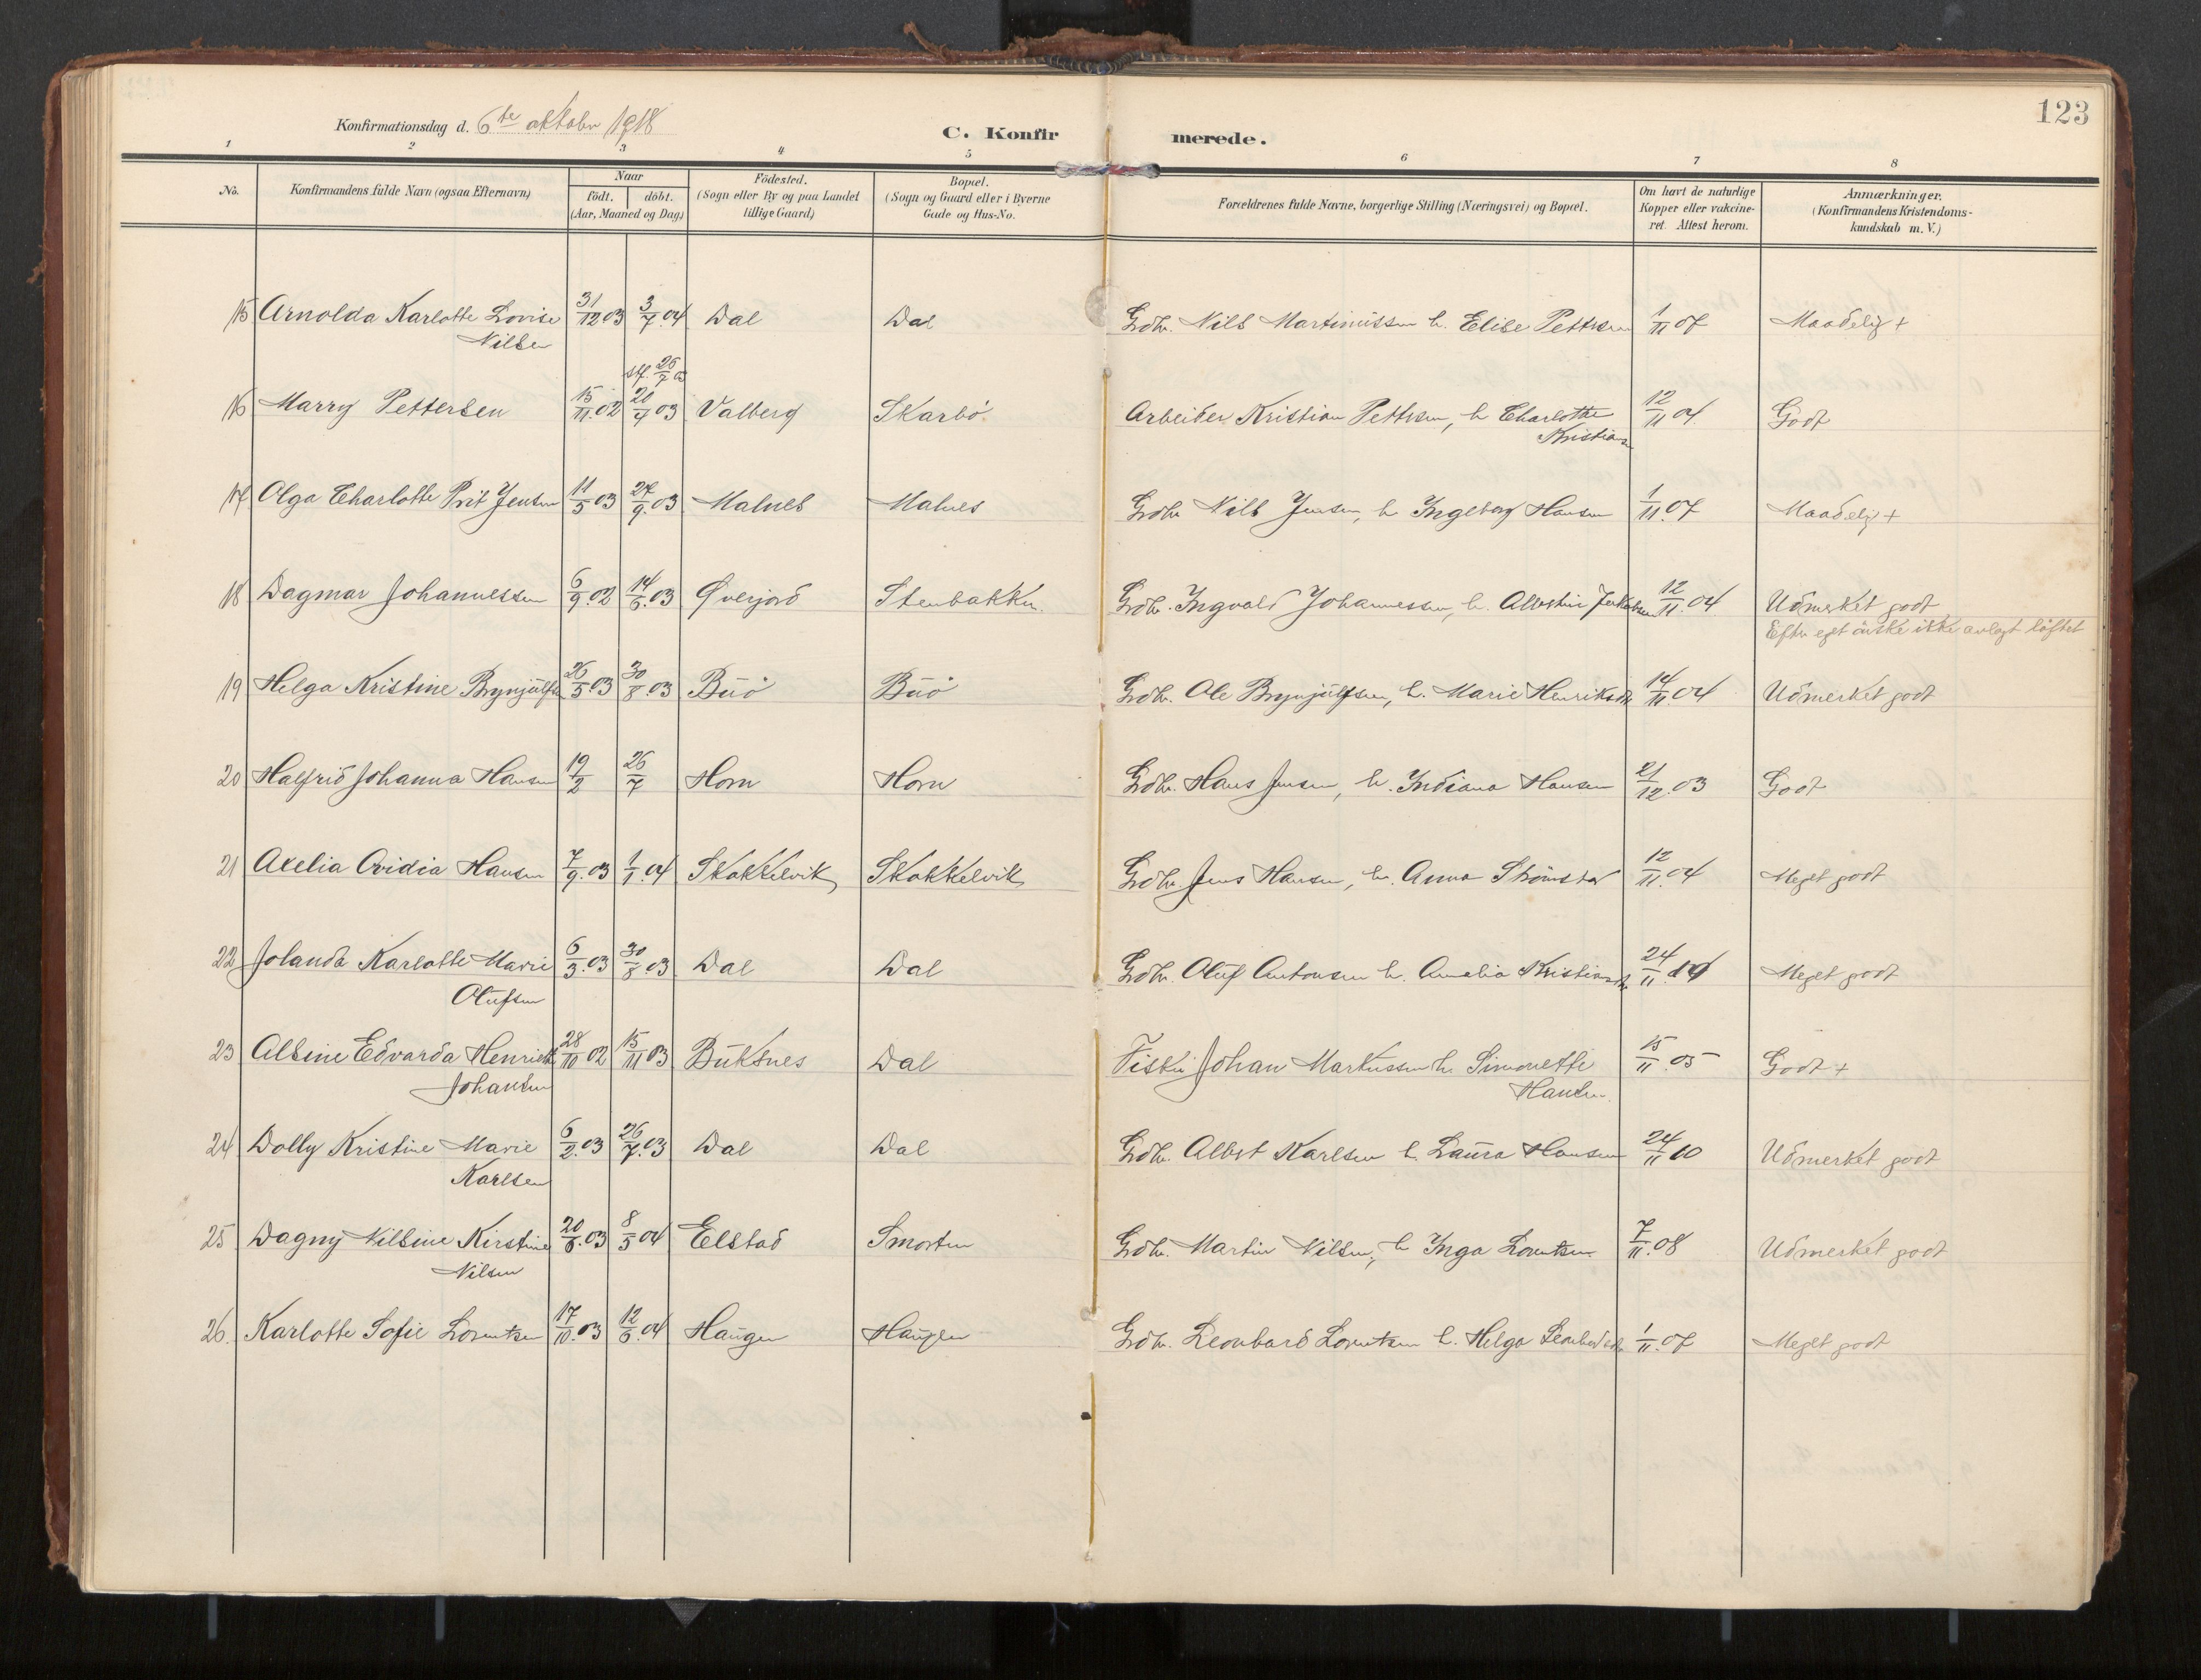 123
Konfirmationsdag d. 6te oktober 1918
C. Konfirmerede.
1 2 3 4 5 6 7 8
No. Konfirmandens fulde Navn (ogsaa Efternavn) Naar født. døbt. (Aar, Maaned og Dag) Fødested. (Sogn eller By og paa Landet tillige Gaard) Bopæl. (Sogn og Gaard eller i Byerne Gade og Hus-No. Forældrenes fulde Navne, borgerlige Stilling (Næringsvei) og Bopæl. Om havt de naturlige Kopper eller vakcineret. Attest herom. Anmærkninger. (Konfirmandens Kristendomskundskab m.V.)
15 Arnolda Karlotte Lovise 31/12 03 3/7.04 Dal Dal Grdbr. Nils Martinussen h. Elise Pettersen 1/11 07 Maadelig +
Nilsen
stf. 26/7 03
16 Marry Pettersen 15/11.02 20/4 03 Valberg Skarbø Arbeider Kristian Pettersen, h Charlotte 12/11 04. Godt
Kristians
17 Olga Charlotte Prit Jensen 11/5 03 27/9.03 Malnes Malnes Grdbr Nils Jensen, h. Ingeborg Hansen 1/11.07 Maadelig +
18 Dagmar Johannessen 6/9.02 14/6.03 Øverjord Stenbakken Grdbr. Ingvald Johannessen, h. Albertine Jakobsen 12/11.04 Udmerket godt
Efter eget ønske ikke avlagt løftet
19 Helga Kristine Brynjulfs 26/5.03 30/8.03 Buø Buø Grdbr. Ole Brynjulfsen, h. Marie Henriksdtr 14/11.04 Udmerket godt
20 Halfrid Johanna Hansen 19/2 26/7 Horn Horn Grdbr. Hans Jensen, h. Indiana Hansen 21/12.03 Godt
21 Axelia Ovidia Hansen 7/9.03 1/1.04 Skokkelvik Skokkelvik Grdbr Jens Hansen, h. Anna Strømstad 12/11.04 Meget godt
22 Jolanda Karlotte Marie 6/3.03 30/8 03 Dal Dal Grdbr. Oluf Antonsen h. Amalia Kristiansdtr 24/11 10 Meget godt
Olufsen
23 Albine Edvarda Henriette 28/10 02 15/11 03 Buksnes Dal Fisker Johan Markussen h. Simonette 15/11.05 Godt +
Johansen Hansen.
24 Dolly Kristine Marie 6/2.03 26/7.03 Dal Dal Grdbr. Albert Karlsen h. Laura Hansen 24/11 10 Udmerket godt
Karlsen
25 Dagny Nilsine Kirstine 20/6.03 8/5 04 Elstad Smorten Grdbr. Martin Nilsen, h Inga Lorentsen 7/11.08 Udmerket godt
Nilsen
26. Karlotte Sofie Lorentsen 17/10.03 12/6.04 Haugen Haugen Grdbr. Leonhard Lorentsen h. Helga 1/11.07 Meget godt